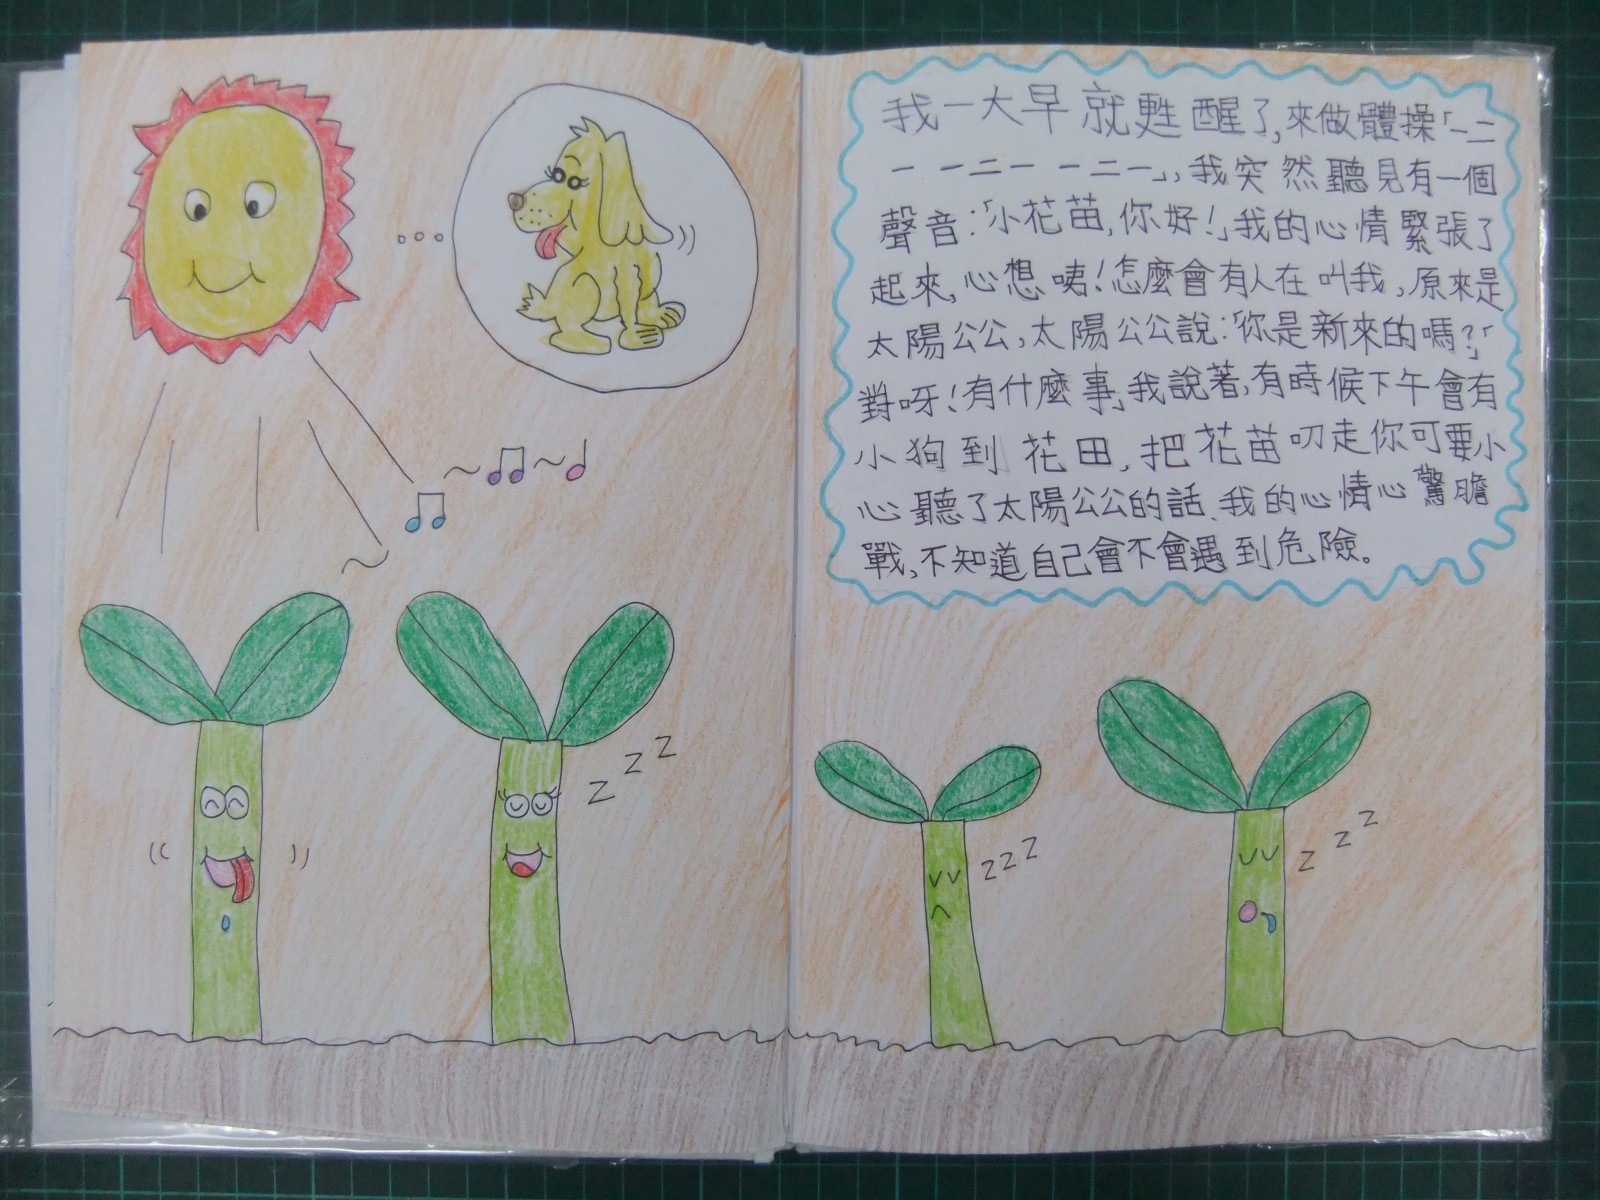 我一大早就甦醒了,來做體操「一二
一 一二一 一二一」,我突然聽見有一個
聲音:「小花苗,你好!」我的心情緊張了
起來,心想咦!怎麼會有人在叫我,原來是
太陽公公,太陽公公說:「你是新來的嗎?」
對呀!有什麼事,我說著,有時候下午會有
小狗到花田,把花苗叨走你可要小
心聽了太陽公公的話、我的心情心驚膽
戰,不知道自己會不會遇到危險。
z z z
z z z
z z z